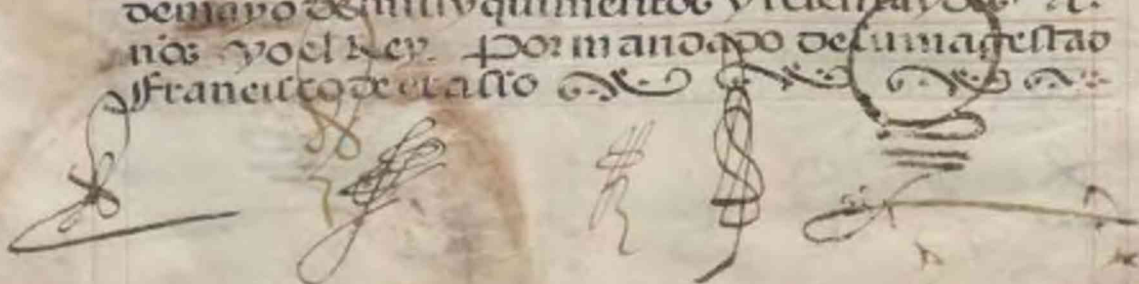 de mayo de mill y quinientos y sesenta y dos a.
ños. yo el Rey. Por mandado de su magestad
Francisco de erasso